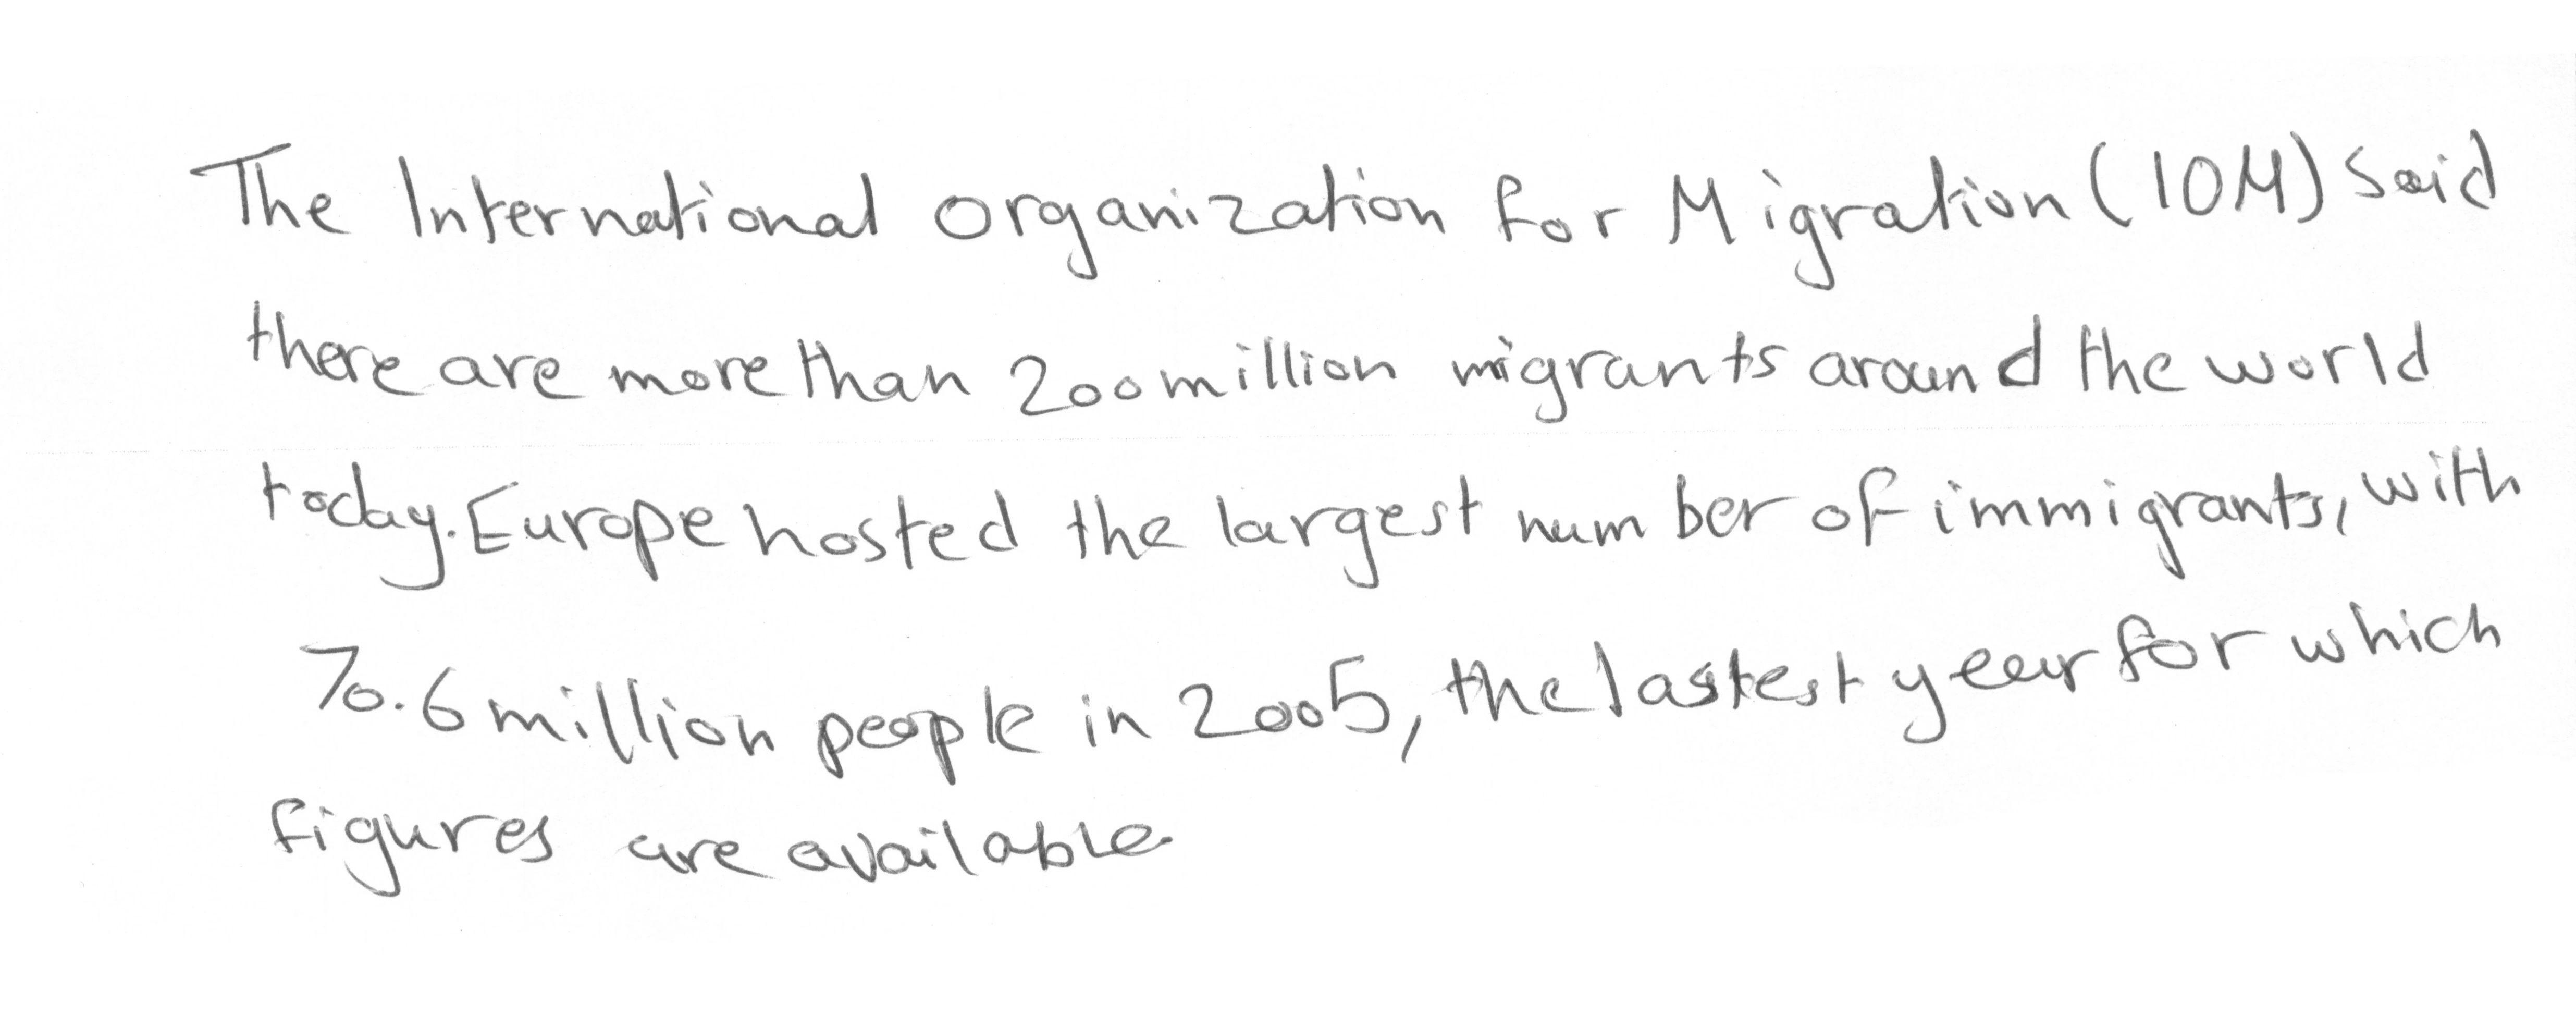 The International Organization for Migration (IOM) said
there are more than 200 million migrants around the world
today. Europe hosted the largest number of immigrants, with
70.6 million people in 2005, the lastest year for which
figures are available